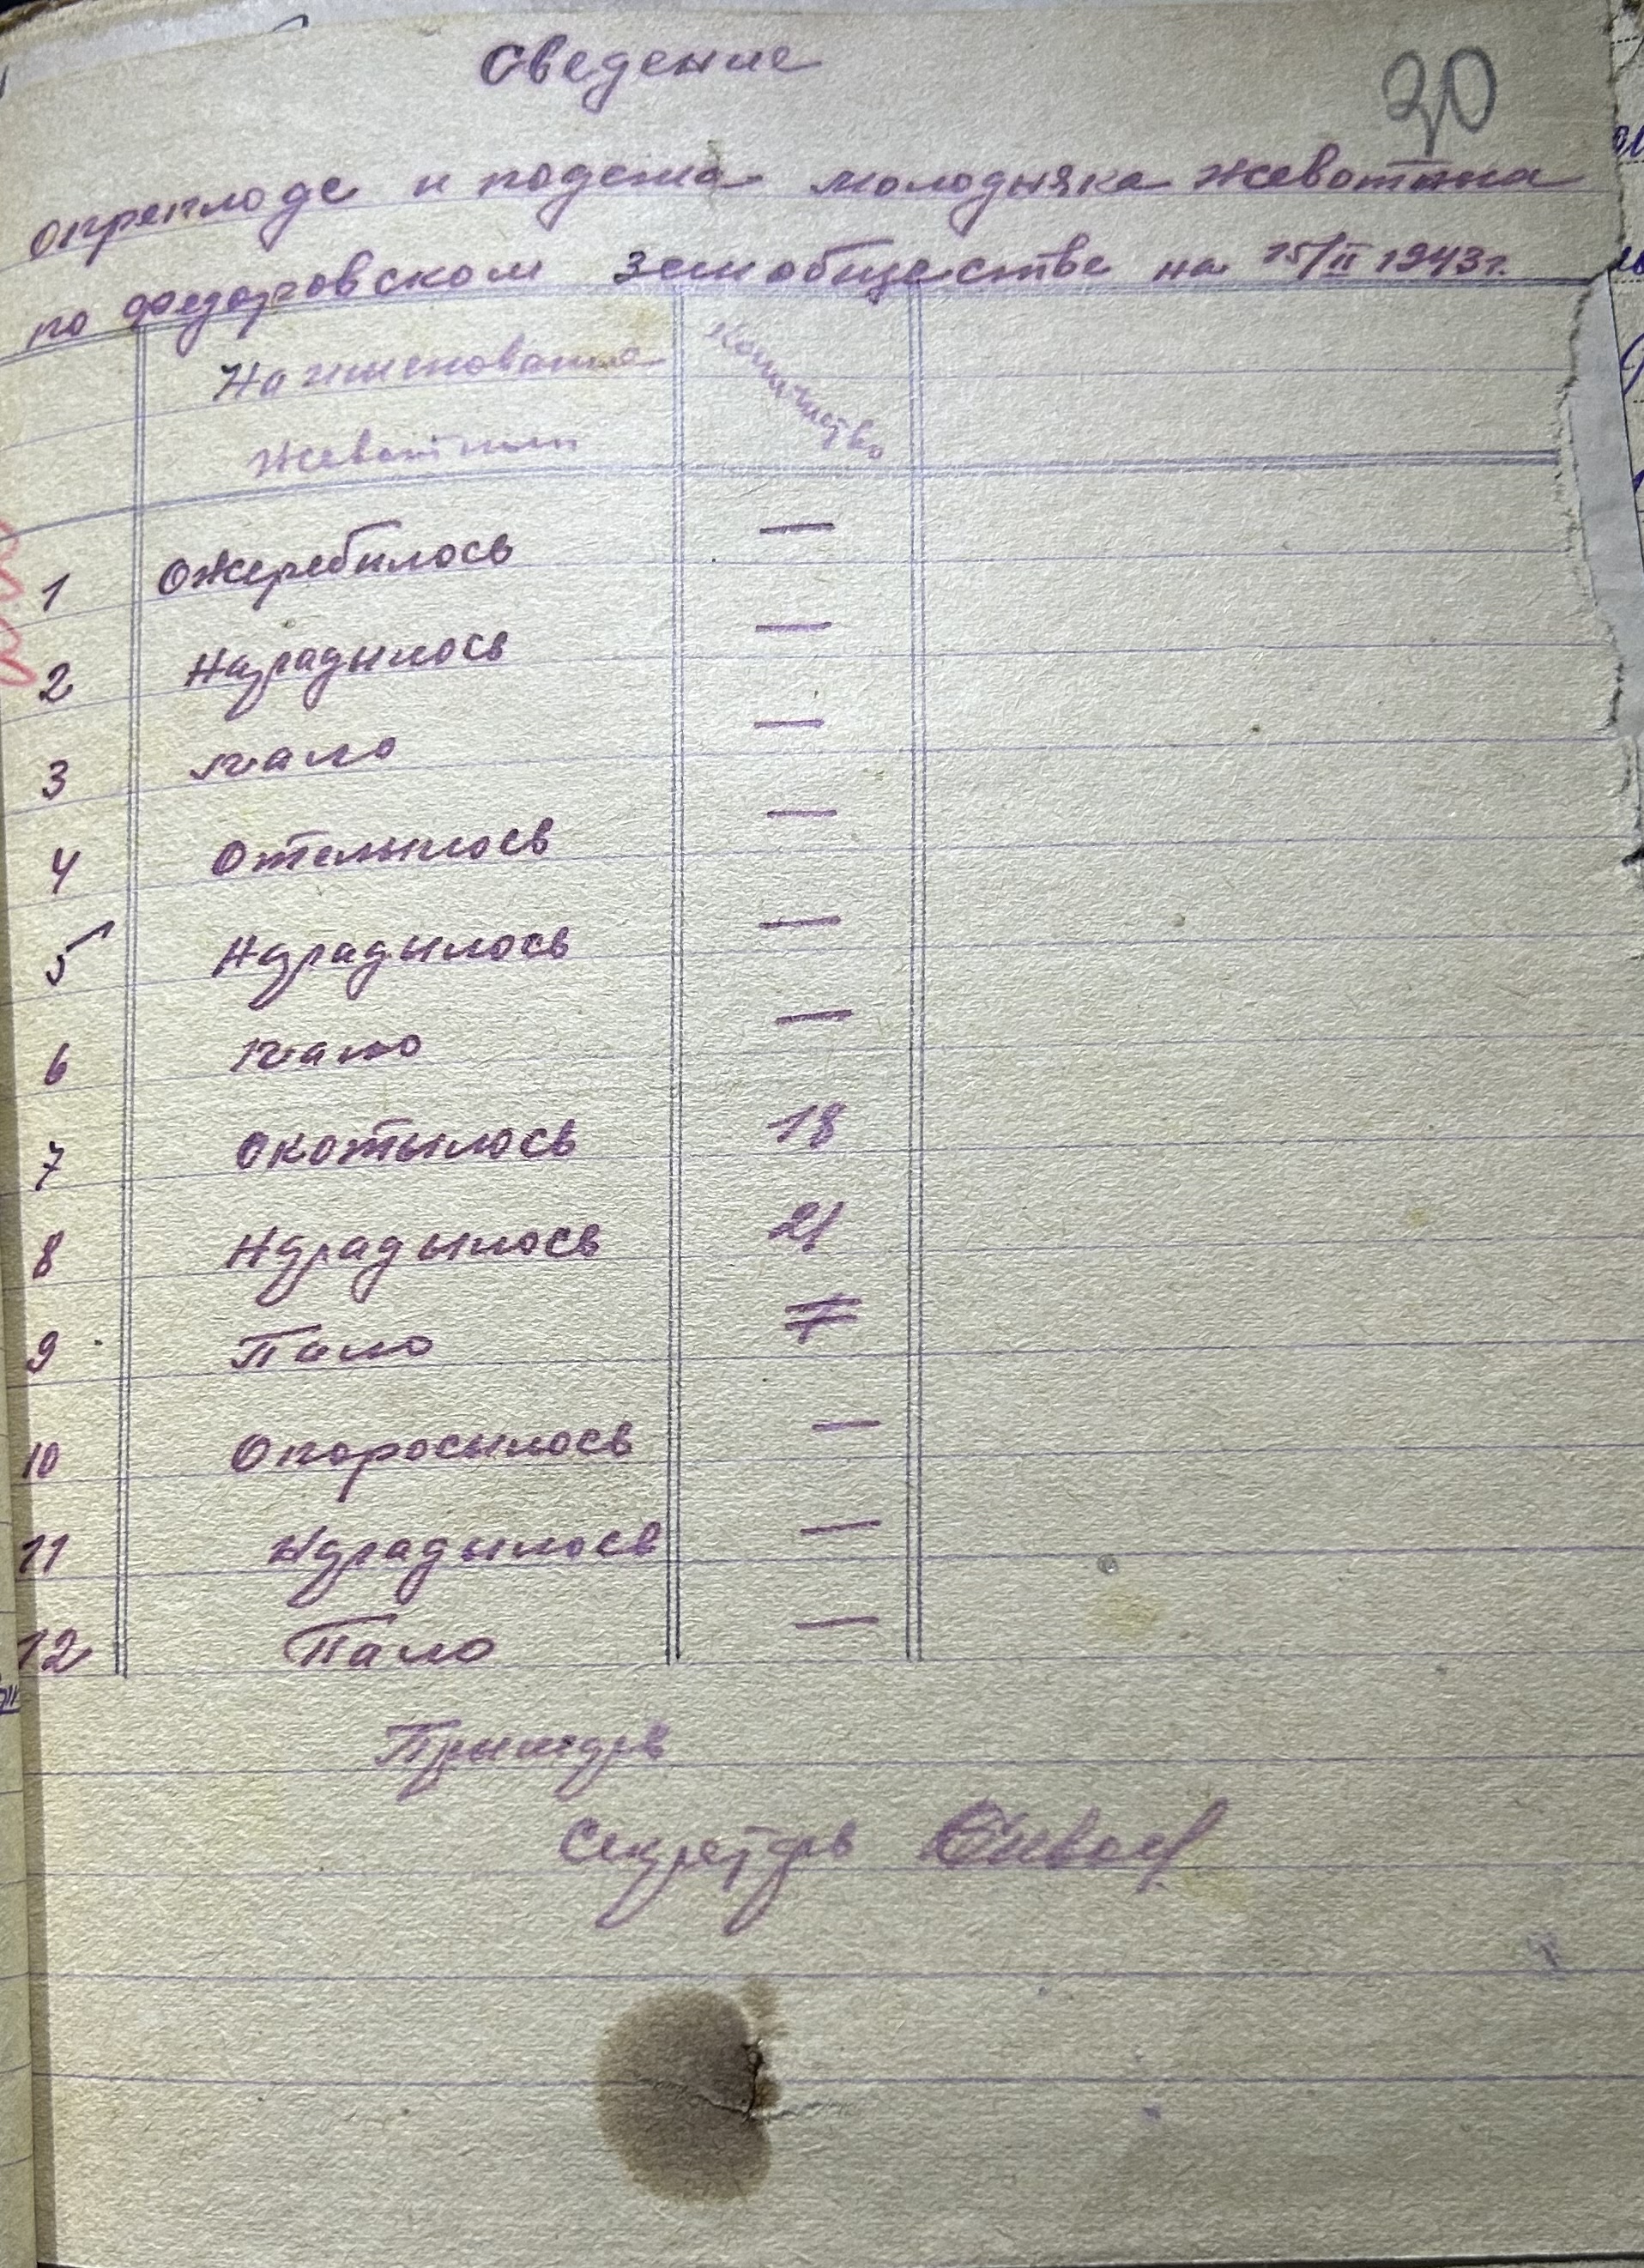 Сведение
30
оприплоде и подежа молодняка жевотина
по Федоровском Земобществе на 15/II 1943 г.
Наименование жевотных
Количество
1 Ожеребилось —
2 Народылось —
3 пало —
4 Отелылось —
5 Народылось —
6 пало —
7 Окотылось 18
8 Народылось 21
9 Пало
10 Опоросылось —
11 Народылось —
12 Пало —
Секретарь